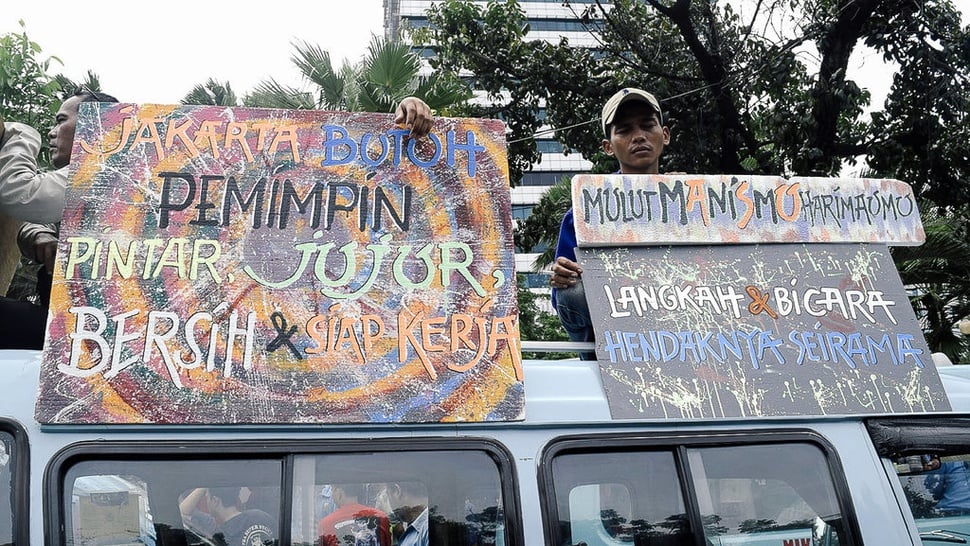 JAKARTA BUTUH
PEMIMPIN
PINTAR, JUJUR,
BERSIH & SIAP KERJA
MULUT MANISMO HARIMAOMO
LANGKAH & BICARA
HENDAKNYA SEIRAMA